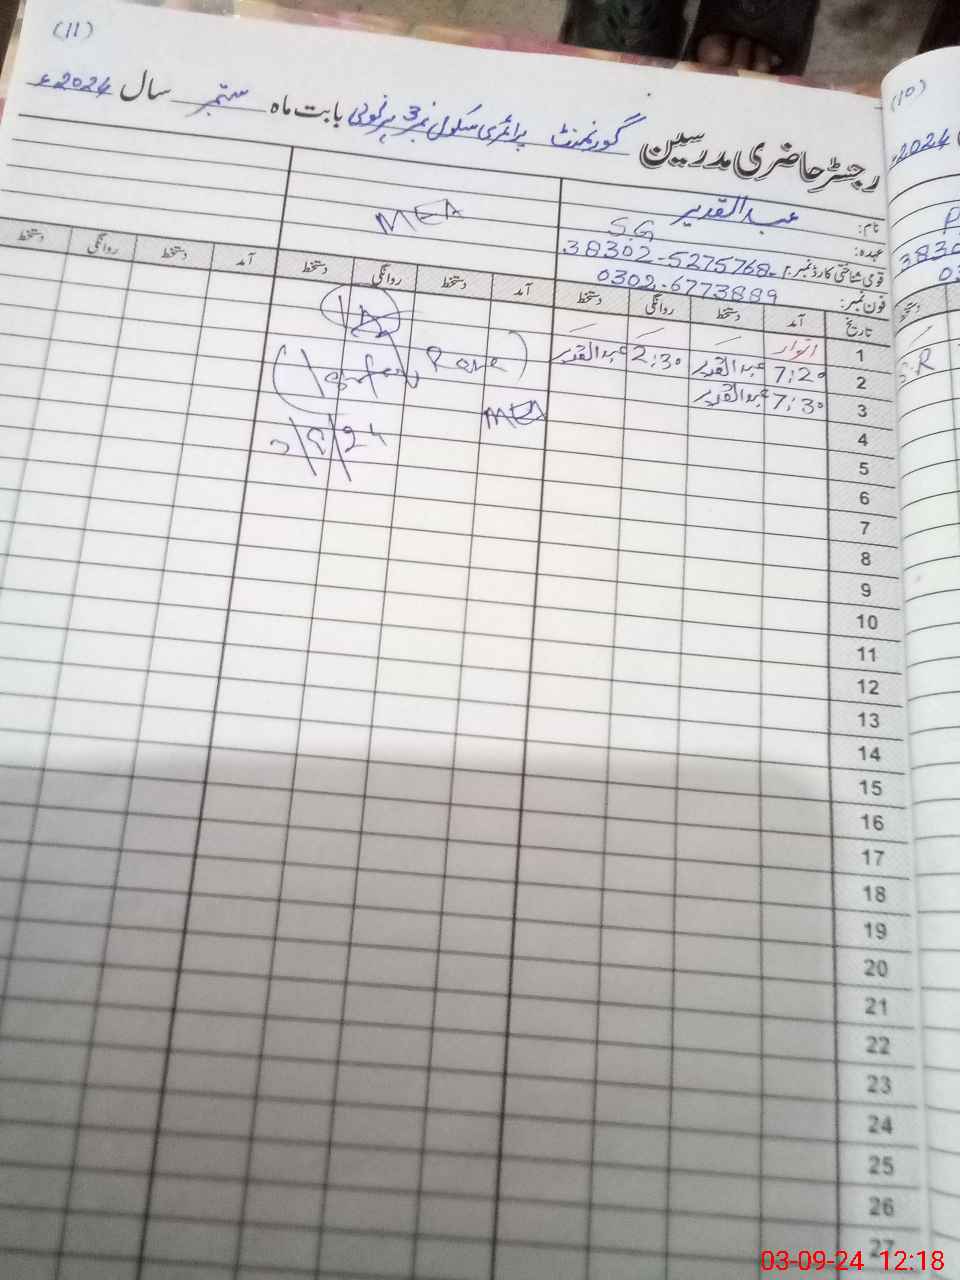 (11)
رجسٹر حاضری مدرسین گورنمنٹ پرائمری سکول نمبر 3 ہرنولی بابت ماہ ستمبر سال 2024ء
نام: عبدالقدیر
عہدہ: S.G
قومی شناختی کارڈ نمبر: 38302-5275768-
فون نمبر: 0302-6773889
MEA
تاریخ آمد دستخط روانگی دستخط آمد دستخط روانگی دستخط آمد دستخط روانگی دستخط
1 اتوار
2 7:20 عبدالقدیر 2:30 عبدالقدیر
3 7:30 عبدالقدیر MEA
4
5
6
7
8
9
10
11
12
13
14
15
16
17
18
19
20
21
22
23
24
25
26
27
(10)
2024
دستخط
03-09-24 12:18